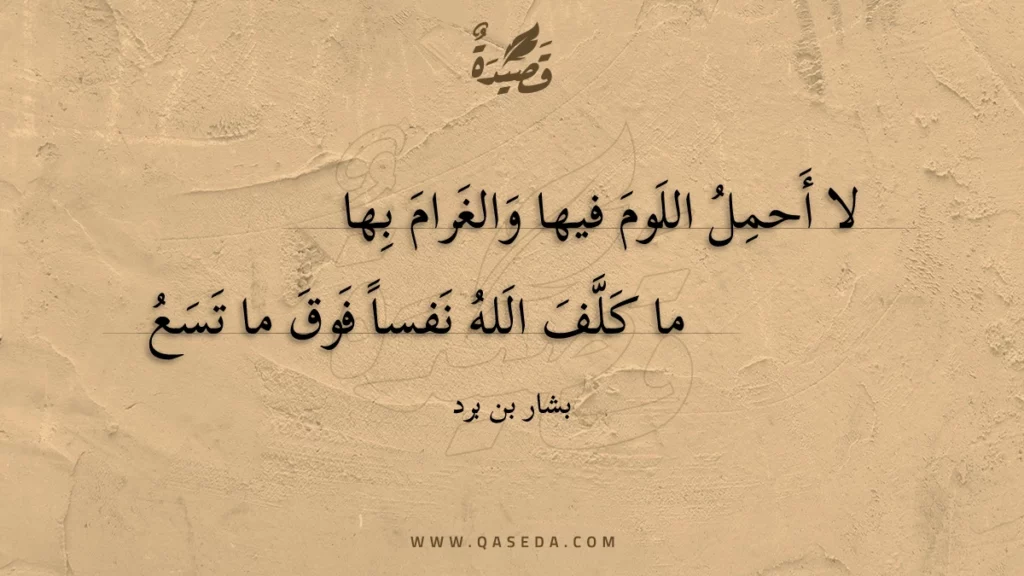 قَصِيْدَةٌ
لا أَحمِلُ اللَومَ فيها وَالغَرامَ بِها
ما كَلَّفَ اللَهُ نَفساً فَوقَ ما تَسَعُ
بشار بن برد
WWW.QASEDA.COM